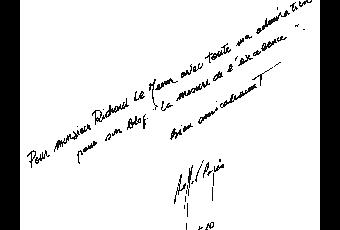 Pour monsieur Richard Le Menn avec toute mon admiration
pour son blog "La mesure de l'excellence".
Bien amicalement